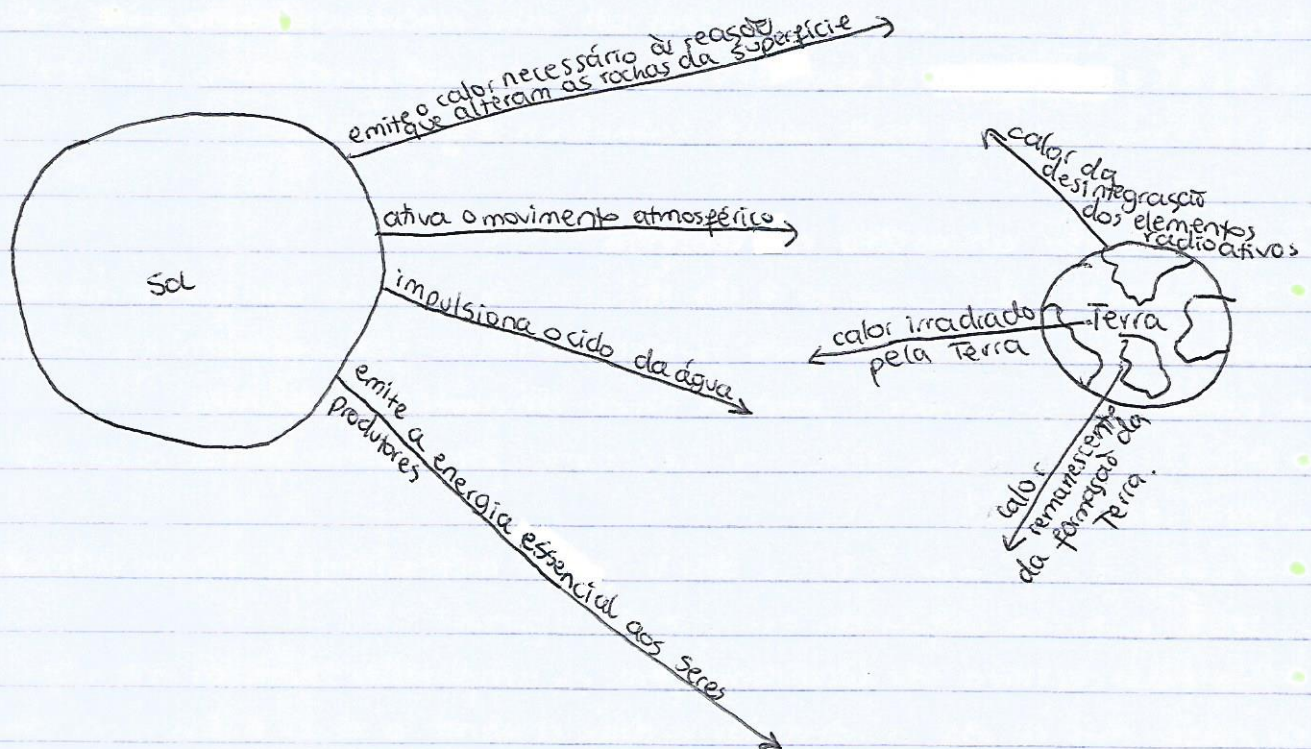 emite o calor necessário à reasão
que alteram as rochas da superfície
ativa o movimento atmosférico
Sol
impulsiona o ciclo da água
emite a energia essencial aos seres
produtores
calor da
desintegração
dos elementos
radioativos
calor irradiado
pela Terra
Terra
calor
remanescente
da formação da
Terra.